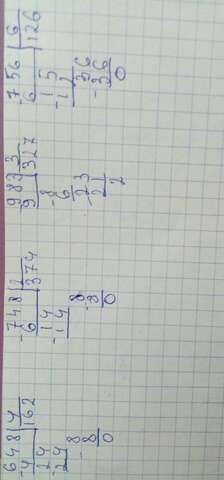 648|4
-4|162
24
-24
8
-8
0
-748|2
6|374
14
-14
8
-8
0
983|3
9|327
-8
6
-23
21
2
-756|6
6|126
15
-12
36
-36
0